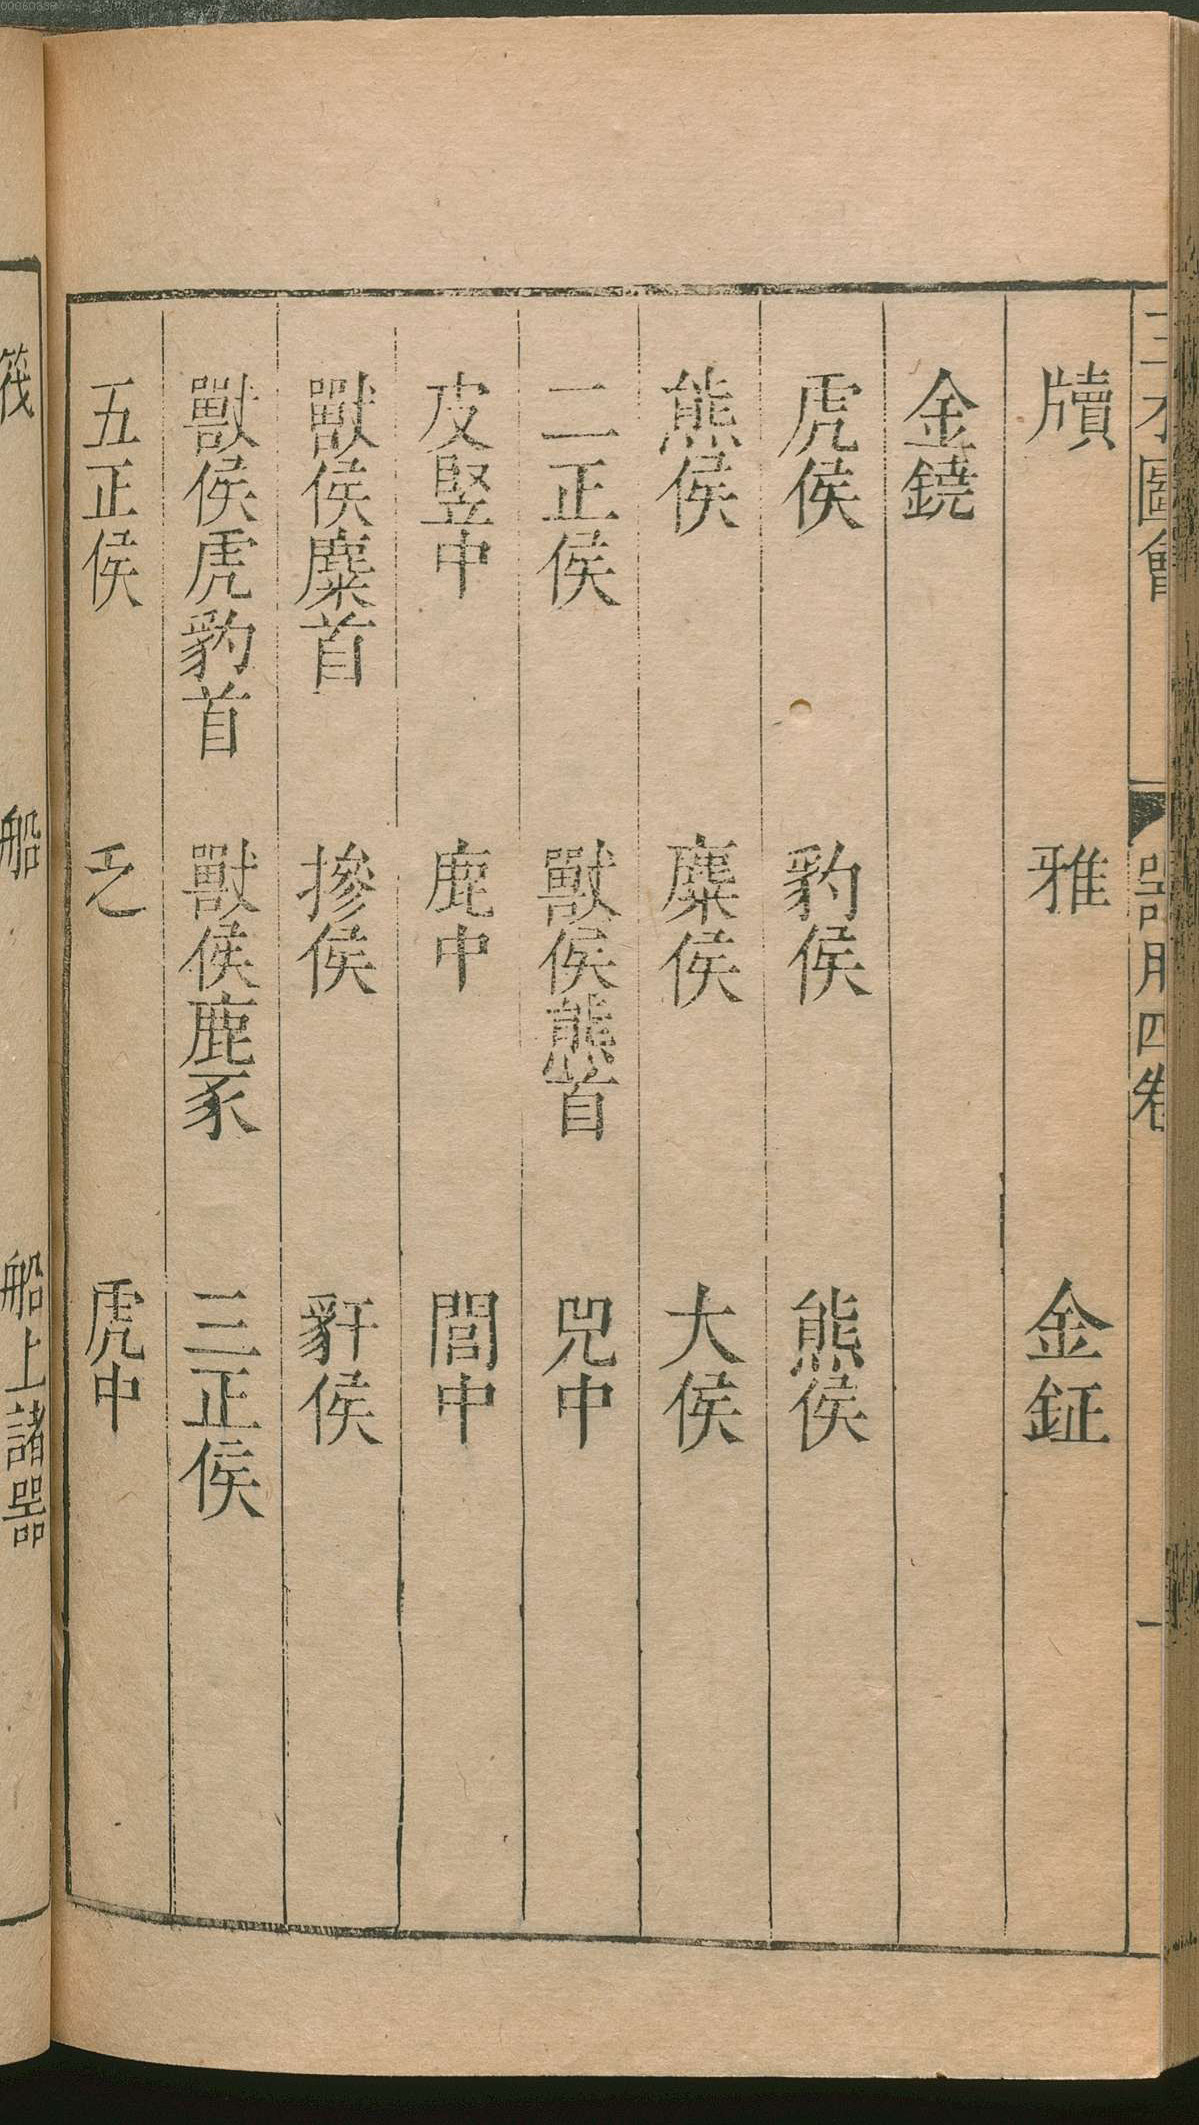 三才圖會 器用四卷 一
牘 雅 金鉦
金鐃
虎侯 豹侯 熊侯
熊侯 麋侯 大侯
二正侯 獸侯熊首 兕中
皮豎中 鹿中 閭中
獸侯麋首 摻侯 豻侯
獸侯虎豹首 獸侯鹿豕 三正侯
五正侯 乏 虎中
筏 船 船上諸器